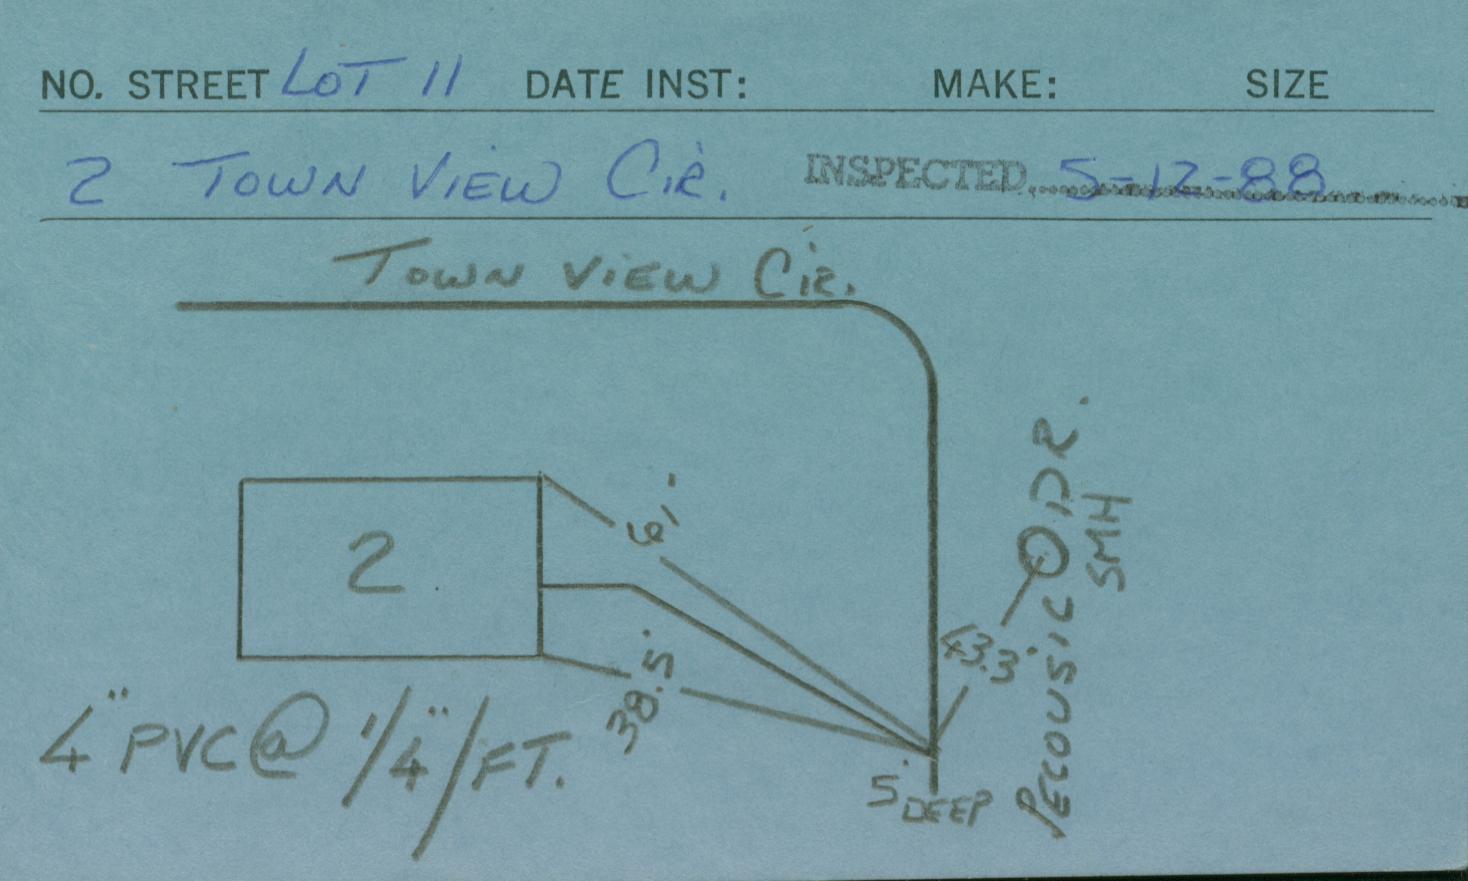 NO. STREET LOT 11 DATE INST: MAKE: SIZE
2 TOWN VIEW CIR. INSPECTED 5-12-88
TOWN VIEW CIR.
2
61'
38.5'
43.3'
PECOUSIC DR.
SMH
4" PVC @ 1/4"/FT.
5' DEEP